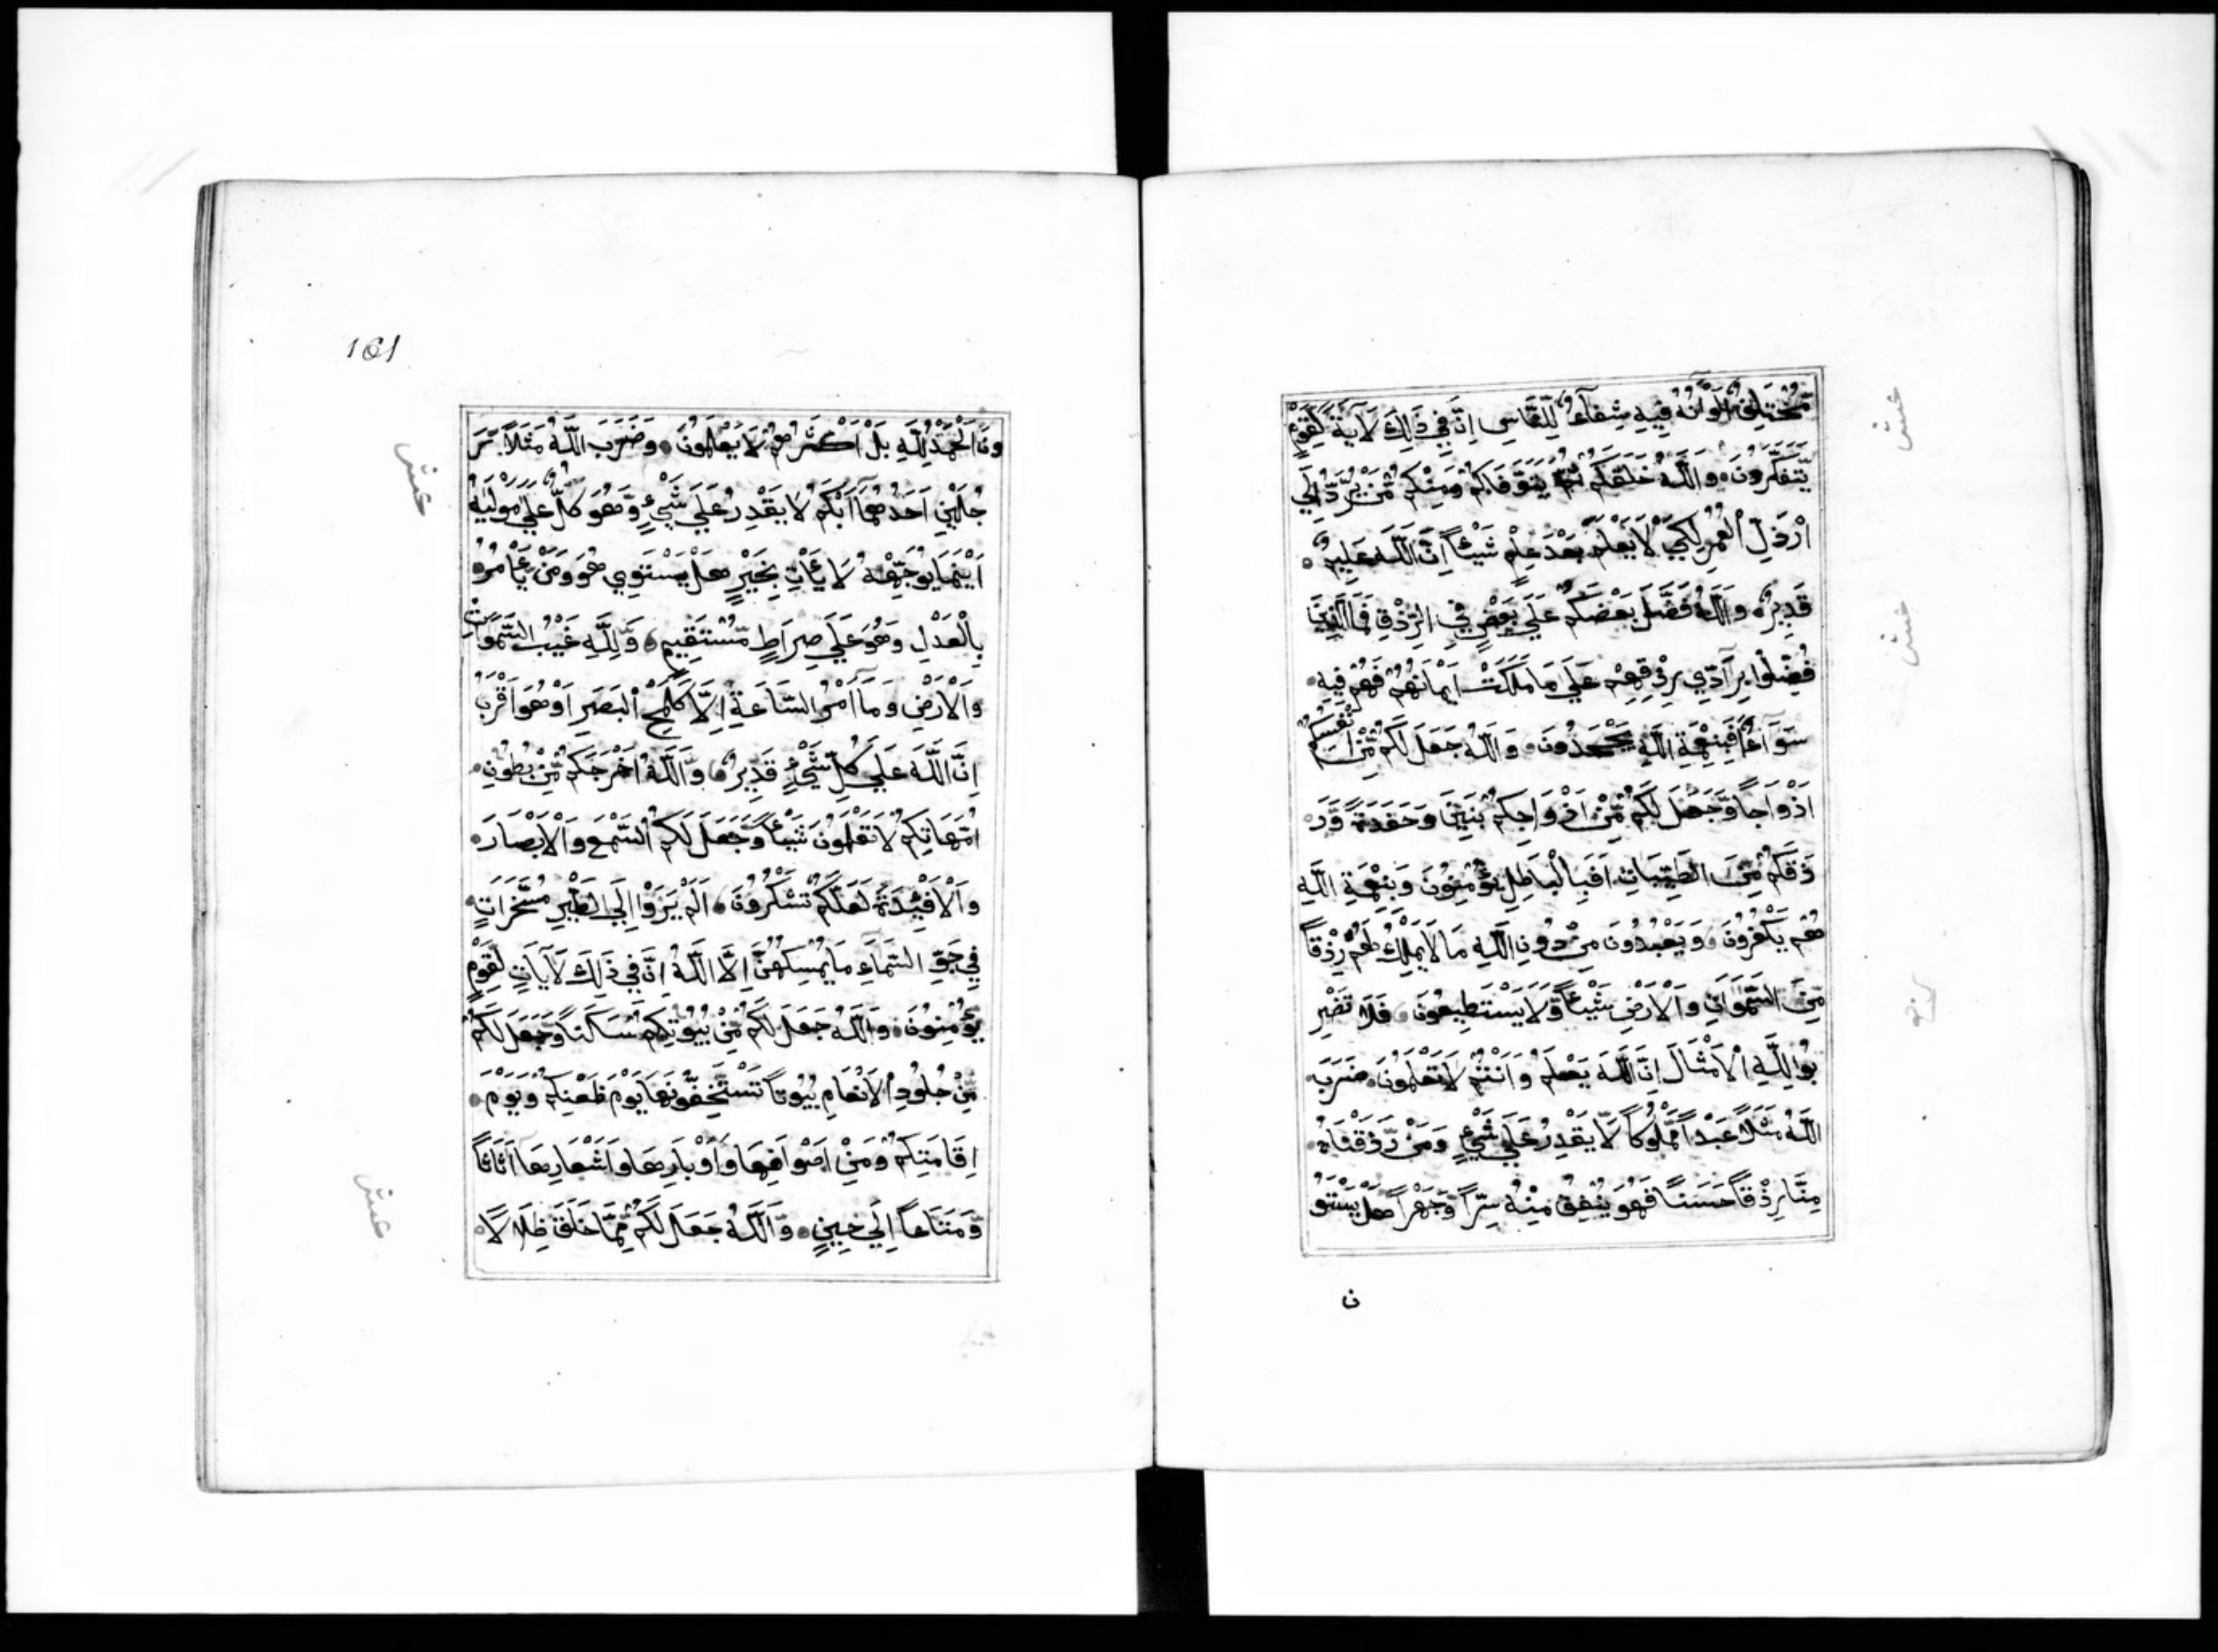 مُّخْتَلِفٌ اَلْوَانُهُ فِيهِ شِفَآءٌ لِّلنَّاسِ اِنَّ فِي ذٰلِكَ لَاٰيَةً لِّقَوْمٍ
يَّتَفَكَّرُونَ وَاللّٰهُ خَلَقَكُمْ ثُمَّ يَتَوَفَّاكُمْ وَمِنْكُمْ مَّنْ يُّرَدُّ اِلَي
اَرْذَلِ الْعُمُرِ لِكَيْ لَا يَعْلَمَ بَعْدَ عِلْمٍ شَيْئاً اِنَّ اللّٰهَ عَلِيمٌ
قَدِيرٌ وَاللّٰهُ فَضَّلَ بَعْضَكُمْ عَلَي بَعْضٍ فِي الرِّزْقِ فَمَا الَّذِينَ
فُضِّلُوا بِرَآدِّي رِزْقِهِمْ عَلَي مَا مَلَكَتْ اَيْمَانُهُمْ فَهُمْ فِيهِ
سَوَآءٌ اَفَبِنِعْمَةِ اللّٰهِ يَجْحَدُونَ وَاللّٰهُ جَعَلَ لَكُمْ مِّنْ اَنْفُسِكُمْ
اَزْوَاجاً وَّجَعَلَ لَكُمْ مِّنْ اَزْوَاجِكُمْ بَنِينَ وَحَفَدَةً وَّرَ
زَقَكُمْ مِّنَ الطَّيِّبَاتِ اَفَبِالْبَاطِلِ يُؤْمِنُونَ وَبِنِعْمَةِ اللّٰهِ
هُمْ يَكْفُرُونَ وَيَعْبُدُونَ مِنْ دُونِ اللّٰهِ مَا لَا يَمْلِكُ لَهُمْ رِزْقاً
مِّنَ السَّمٰوَاتِ وَالْاَرْضِ شَيْئاً وَّلَا يَسْتَطِيعُونَ فَلَا تَضْرِ
بُوا لِلّٰهِ الْاَمْثَالَ اِنَّ اللّٰهَ يَعْلَمُ وَاَنْتُمْ لَا تَعْلَمُونَ ضَرَبَ
اللّٰهُ مَثَلاً عَبْداً مَّمْلُوكاً لَّا يَقْدِرُ عَلَي شَيْءٍ وَمَنْ رَّزَقْنَاهُ
مِنَّا رِزْقاً حَسَناً فَهُوَ يُنْفِقُ مِنْهُ سِرّاً وَّجَهْراً هَلْ يَسْتَوُ
ن
161
ونَ اَلْحَمْدُ لِلّٰهِ بَلْ اَكْثَرُهُمْ لَا يَعْلَمُونَ وَضَرَبَ اللّٰهُ مَثَلاً رَّ
جُلَيْنِ اَحَدُهُمَآ اَبْكَمُ لَا يَقْدِرُ عَلَي شَيْءٍ وَّهُوَ كَلٌّ عَلَي مَوْلٰيهُ
اَيْنَمَا يُوَجِّهْهُ لَا يَأْتِ بِخَيْرٍ هَلْ يَسْتَوِي هُوَ وَمَنْ يَّأْمُرُ
بِالْعَدْلِ وَهُوَ عَلَي صِرَاطٍ مُّسْتَقِيمٍ وَلِلّٰهِ غَيْبُ السَّمٰوَاتِ
وَالْاَرْضِ وَمَآ اَمْرُ السَّاعَةِ اِلَّا كَلَمْحِ الْبَصَرِ اَوْ هُوَ اَقْرَبُ
اِنَّ اللّٰهَ عَلَي كُلِّ شَيْءٍ قَدِيرٌ وَاللّٰهُ اَخْرَجَكُمْ مِّنْ بُطُونِ
اُمَّهَاتِكُمْ لَا تَعْلَمُونَ شَيْئاً وَّجَعَلَ لَكُمُ السَّمْعَ وَالْاَبْصَارَ
وَالْاَفْئِدَةَ لَعَلَّكُمْ تَشْكُرُونَ اَلَمْ يَرَوْا اِلَي الطَّيْرِ مُسَخَّرَاتٍ
فِي جَوِّ السَّمَآءِ مَا يُمْسِكُهُنَّ اِلَّا اللّٰهُ اِنَّ فِي ذٰلِكَ لَاٰيَاتٍ لِّقَوْمٍ
يُّؤْمِنُونَ وَاللّٰهُ جَعَلَ لَكُمْ مِّنْ بُيُوتِكُمْ سَكَناً وَّجَعَلَ لَكُمْ
مِّنْ جُلُودِ الْاَنْعَامِ بُيُوتاً تَسْتَخِفُّونَهَا يَوْمَ ظَعْنِكُمْ وَيَوْمَ
اِقَامَتِكُمْ وَمِنْ اَصْوَافِهَا وَاَوْبَارِهَا وَاَشْعَارِهَا اَثَاثاً
وَّمَتَاعاً اِلَي حِينٍ وَاللّٰهُ جَعَلَ لَكُمْ مِّمَّا خَلَقَ ظِلَالاً